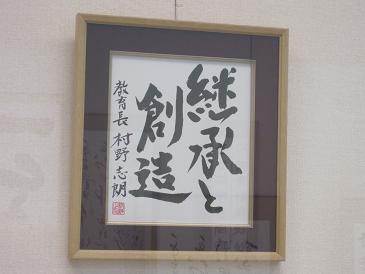 継承と
創造
教育長 村野志朗